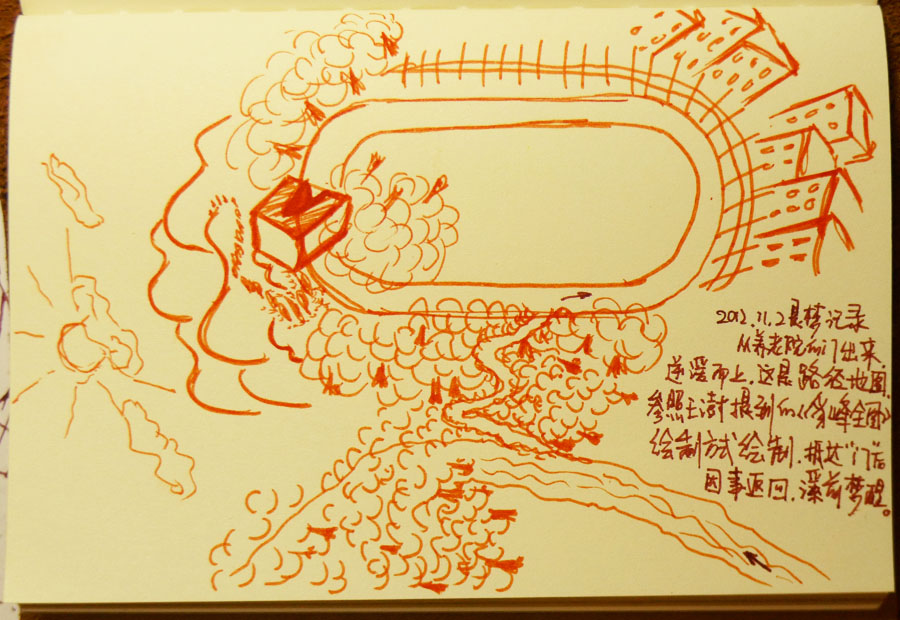 2012.11.2晨梦记录
从养老院后门出来
逆溪而上,这是路径地图,
参照王澍摄制的《峰全图》
绘制方式绘制.抵达"门后
因事返回,溪前梦醒。